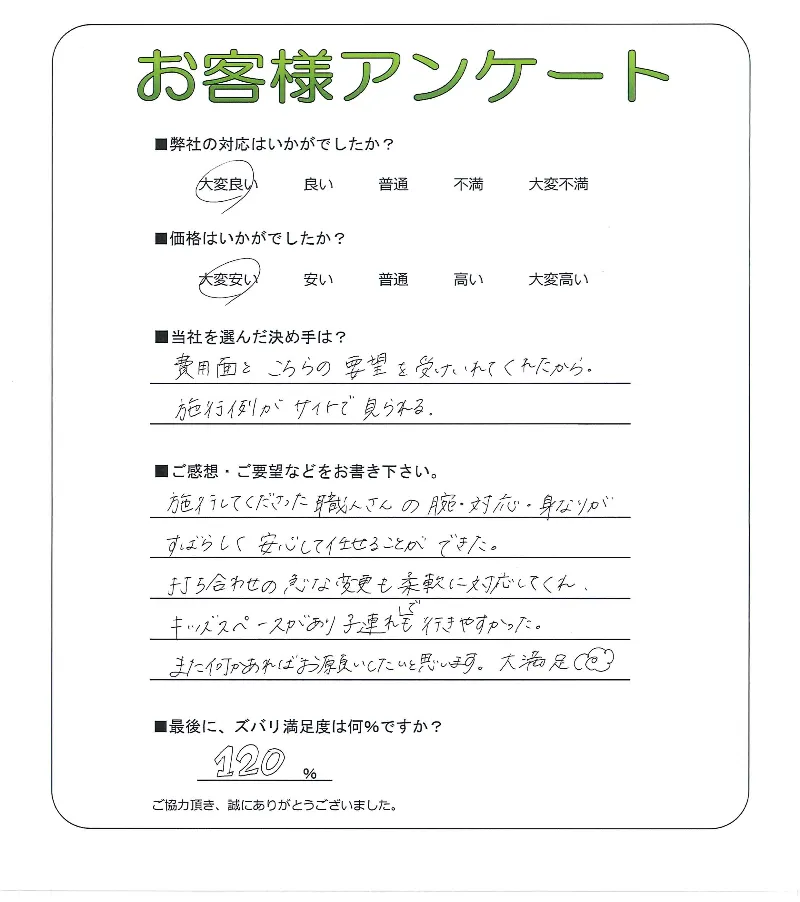 お客様アンケート
■弊社の対応はいかがでしたか？
大変良い 良い 普通 不満 大変不満
■価格はいかがでしたか？
大変安い 安い 普通 高い 大変高い
■当社を選んだ決め手は？
費用面と こちらの 要望を受けいれてくれたから。
施行例が サイトで 見られる.
■ご感想・ご要望などをお書き下さい。
施行してくださった 職人さんの 腕・対応・身なりが
すばらしく 安心して任せることが できた。
打ち合わせの 急な変更も 柔軟に対応してくれ、
キッズスペースがあり 子連れでも 行きやすかった。
また何かあればお願いしたいと思います。大満足
■最後に、ズバリ満足度は何％ですか？
120 %
ご協力頂き、誠にありがとうございました。